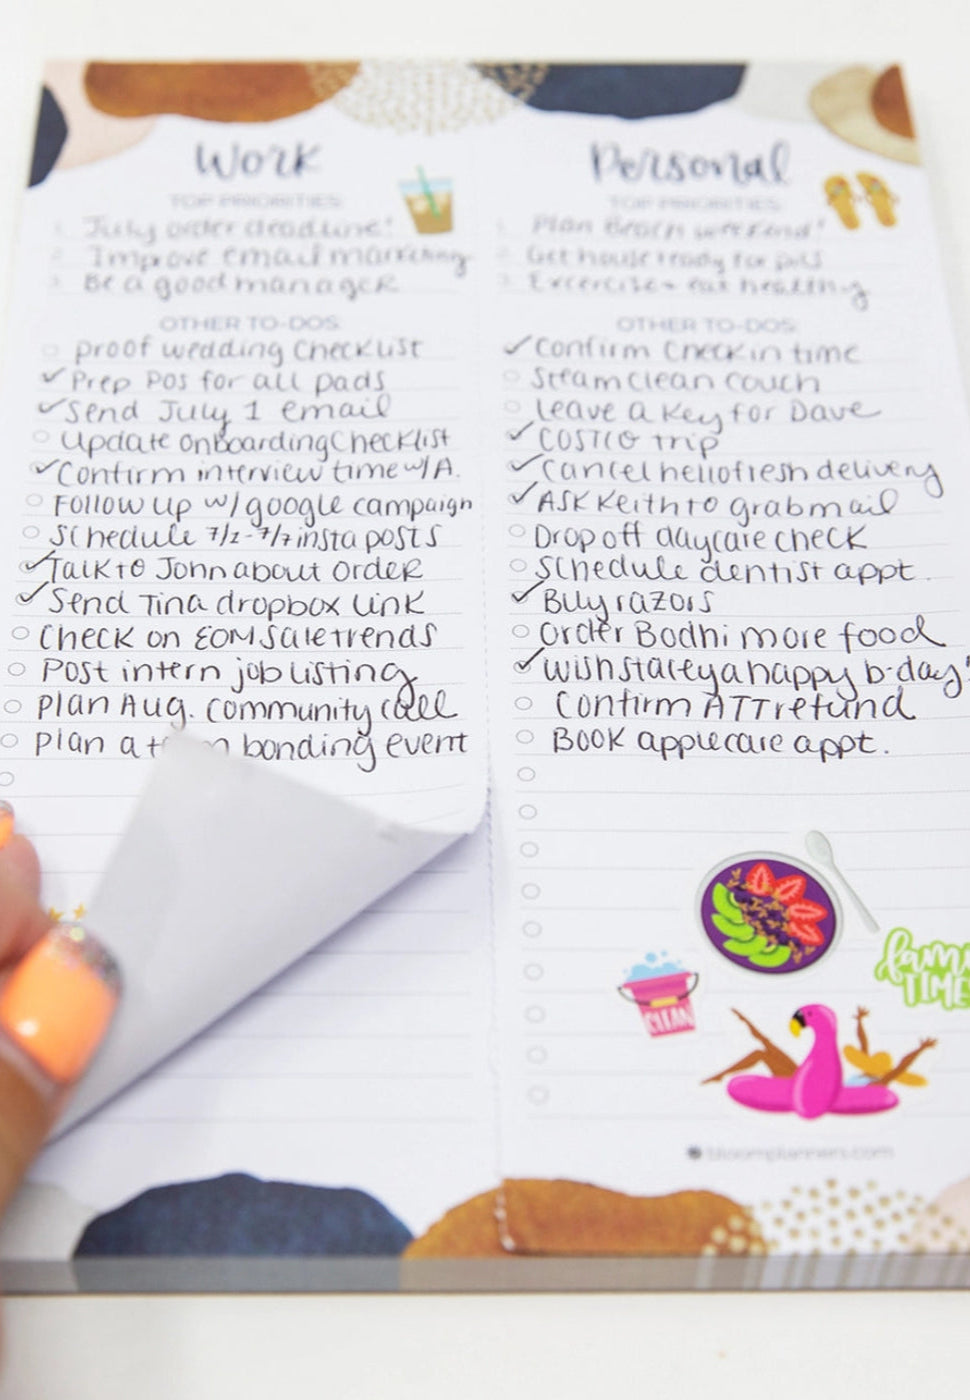 Work
TOP PRIORITIES:
1. July order deadline!
2. Improve email marketing
3. Be a good manager
OTHER TO-DOS:
proof wedding checklist
✓ Prep Pos for all pads
✓ Send July 1 email
Update onboarding checklist
✓ Confirm interview time w/ A.
Follow up w/ google campaign
Schedule 7/1-7/7 insta posts
✓ Talk to John about order
✓ Send Tina dropbox link
Check on EOM sale trends
Post intern job listing
plan Aug. community call
plan a bonding event
Personal
TOP PRIORITIES:
1. Plan Beach weekend!
2. Get house ready for
3. Excercise + eat healthy
OTHER TO-DOS:
✓ Confirm Check in time
Steam clean couch
Leave a key for Dave
✓ COSTCO trip
✓ Cancel hellofresh delivery
✓ ASK Keith to grab mail
Drop off daycare check
Schedule dentist appt.
✓ Buy razors
order Bodhi more food
✓ wish stacey a happy b-day!
Confirm ATT refund
BOOK applecare appt.
CLEAN
TIME
bloomplanners.com